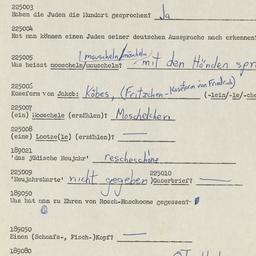 225003
Haben die Juden die Mundart gesprochen? Ja
225004
Hat man können einen Juden seiner deutschen Aussprache nach erkennen?
(mauscheln/
225005
Was heisst mooscheln/muuscheln? mit den Händen spr
225006
Koseform von Jakob: Köbes, (Fritzchen - Koseform von Friedrich)
(-lein/-le/-che
225007
(ein) Mooschele (erzähle)? Moschelchen
225008
(eine) Lootze(le) (erzähle)?
189021
'das jüdische Neujahr' rescheschone
225009 225010
'Neujahrskarte' nicht gegeben )Guserbrief?
189050
Was hat man zu Ehren von Rosch-Haschoone gegessen?
189050
Einen (Schaafs-, Fisch-)Kopf?
189080